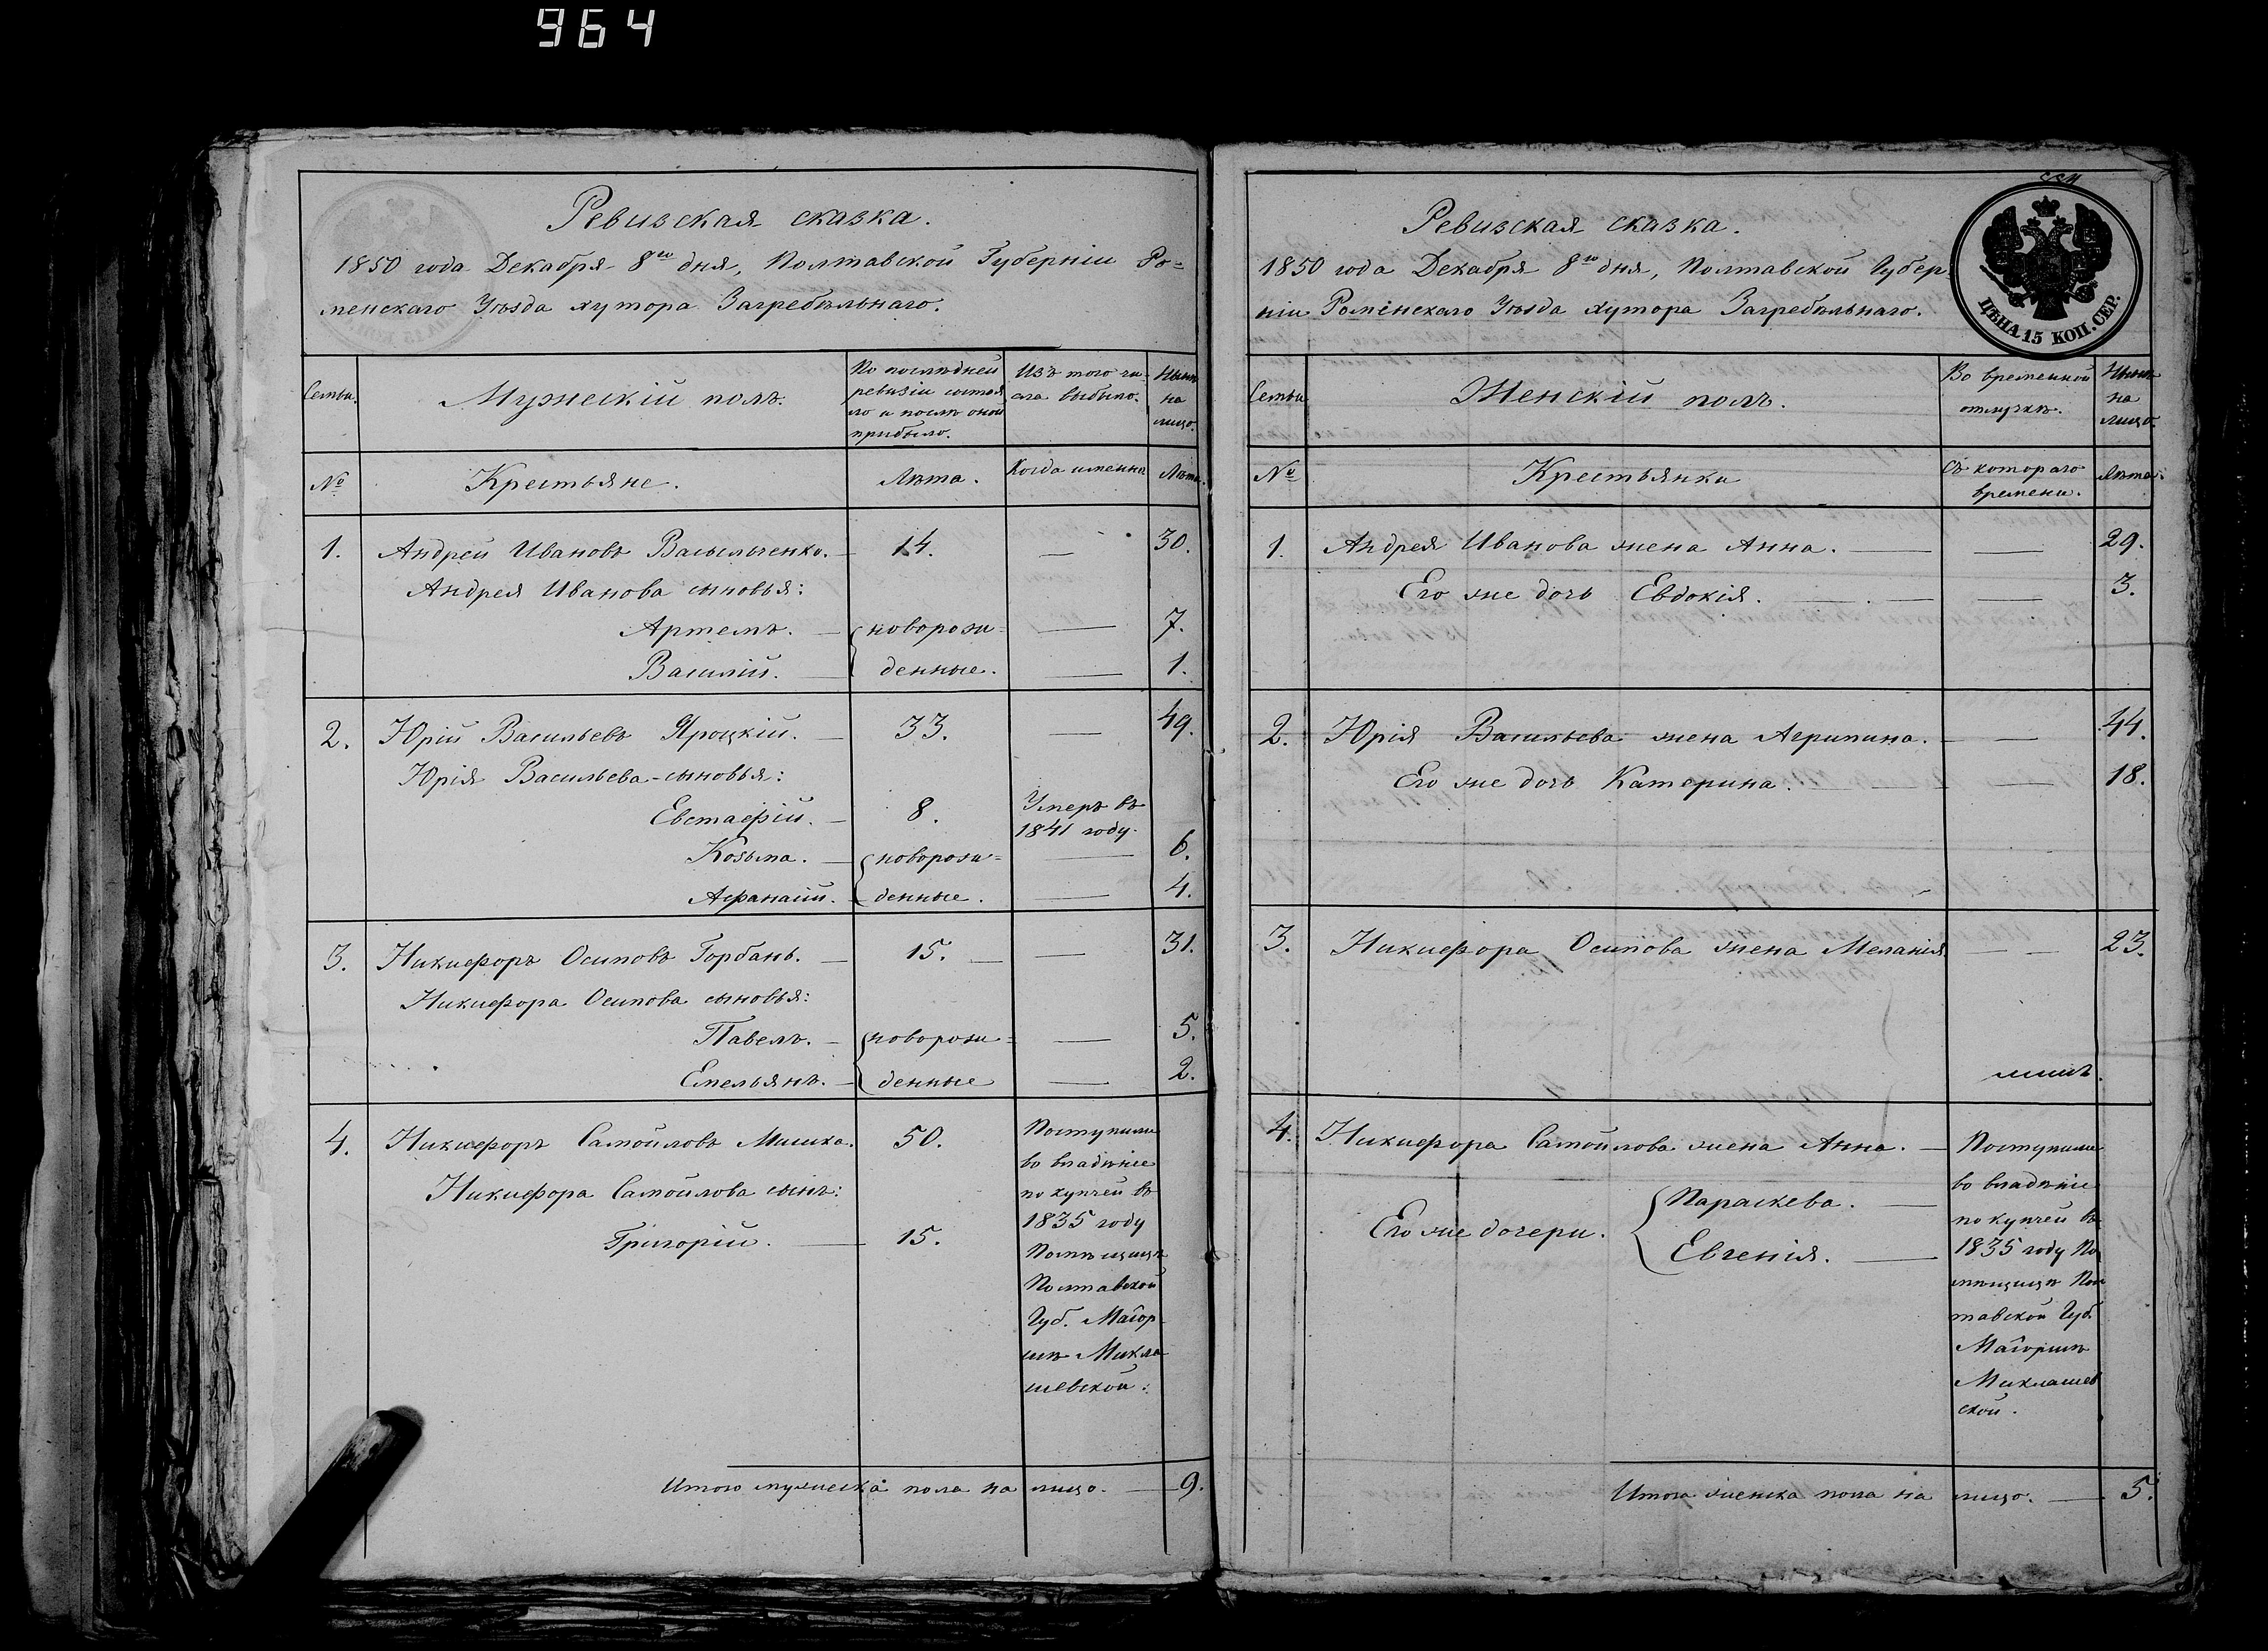 964
Ревизская сказка.
1850 года Декабря 8го дня, Полтавской Губерніи Ро=
менскаго Уѣзда хутора Загребѣльнаго.
Семьи.
Мужескій полъ.
По послѣдней
ревизіи состоя
ло и послѣ оной
прибыло.
Изъ того чи
сла выбыло.
Нынѣ
на
лицо.
№
Крестьяне.
Лѣта.
Когда именно
Лѣта.
1. Андрей Ивановъ Васильченко. — 14. — 30.
Андрея Иванова сыновья:
Артемъ. — новорож= — 7.
Василій. — денные. — 1.
2. Юрій Васильевъ Яроцкій. — 33. — 49.
Юрія Васильева сыновья:
Евстафій. — 8. Умеръ въ
1841 году.
Козьма. — новорож= — 6.
Афанасій. — денные. — 4.
3. Никифоръ Осиповъ Горбань. — 15. — 31.
Никифора Осипова сыновья:
Павелъ. — новорож= — 5.
Емельянъ. — денные — 2.
4. Никифоръ Самойловъ Мишка. 50. Поступили
во владѣніе
Никифора Самойлова сынъ:
по купчей въ
1835 году
Григорій. — 15.
Помѣщицѣ
Полтавской
Губ. Маіор
шѣ Микла
шевской.
Итого мужеска пола на лицо. — 9.
Ревизская сказка.
1850 года Декабря 8го дня, Полтавской Губер
ніи Роменскаго Уѣзда хутора Загребѣльнаго.
ЦѢНА 15 КОП. СЕР.
Семьи
Женскій полъ.
Во временной
отлучкѣ.
Нынѣ
на
лицо.
№
Крестьянки
Съ котораго
времени.
Лѣта.
1. Андрея Иванова жена Анна. — — 29.
Его же дочь Евдокія. — — 3.
2. Юрія Васильева жена Агрипина. — — 44.
Его же дочь Катерина. — — 18.
3. Никифора Осипова жена Меланія — — 23.
4. Никифора Самойлова жена Анна. — Поступили
во владѣніе
Его же дочери. Параскева. —
по купчей въ
Евгенія. — 1835 году По
мѣщицѣ Пол
тавской Губ.
Маіоршѣ
Миклашев
ской.
Итого женска пола на лицо. — 5.